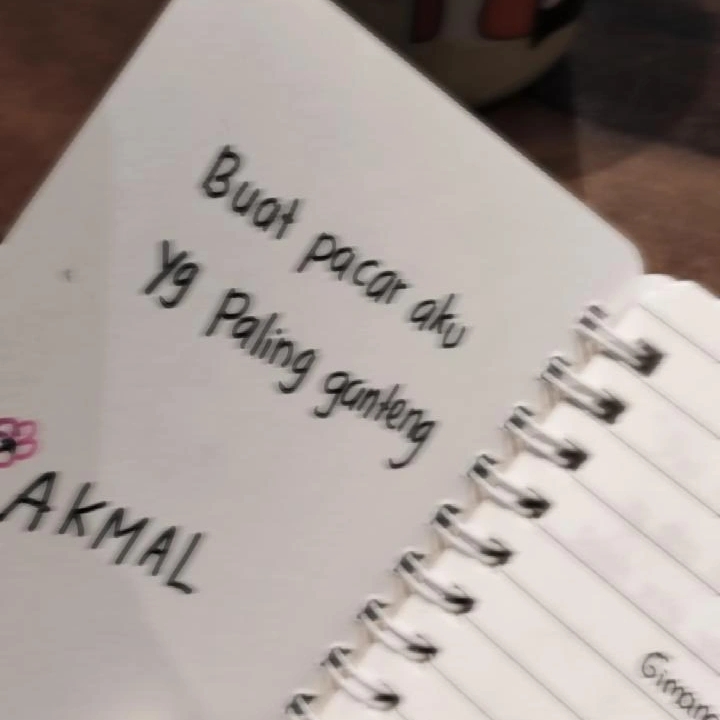 Buat pacar aku
yg Paling ganteng
AKMAL